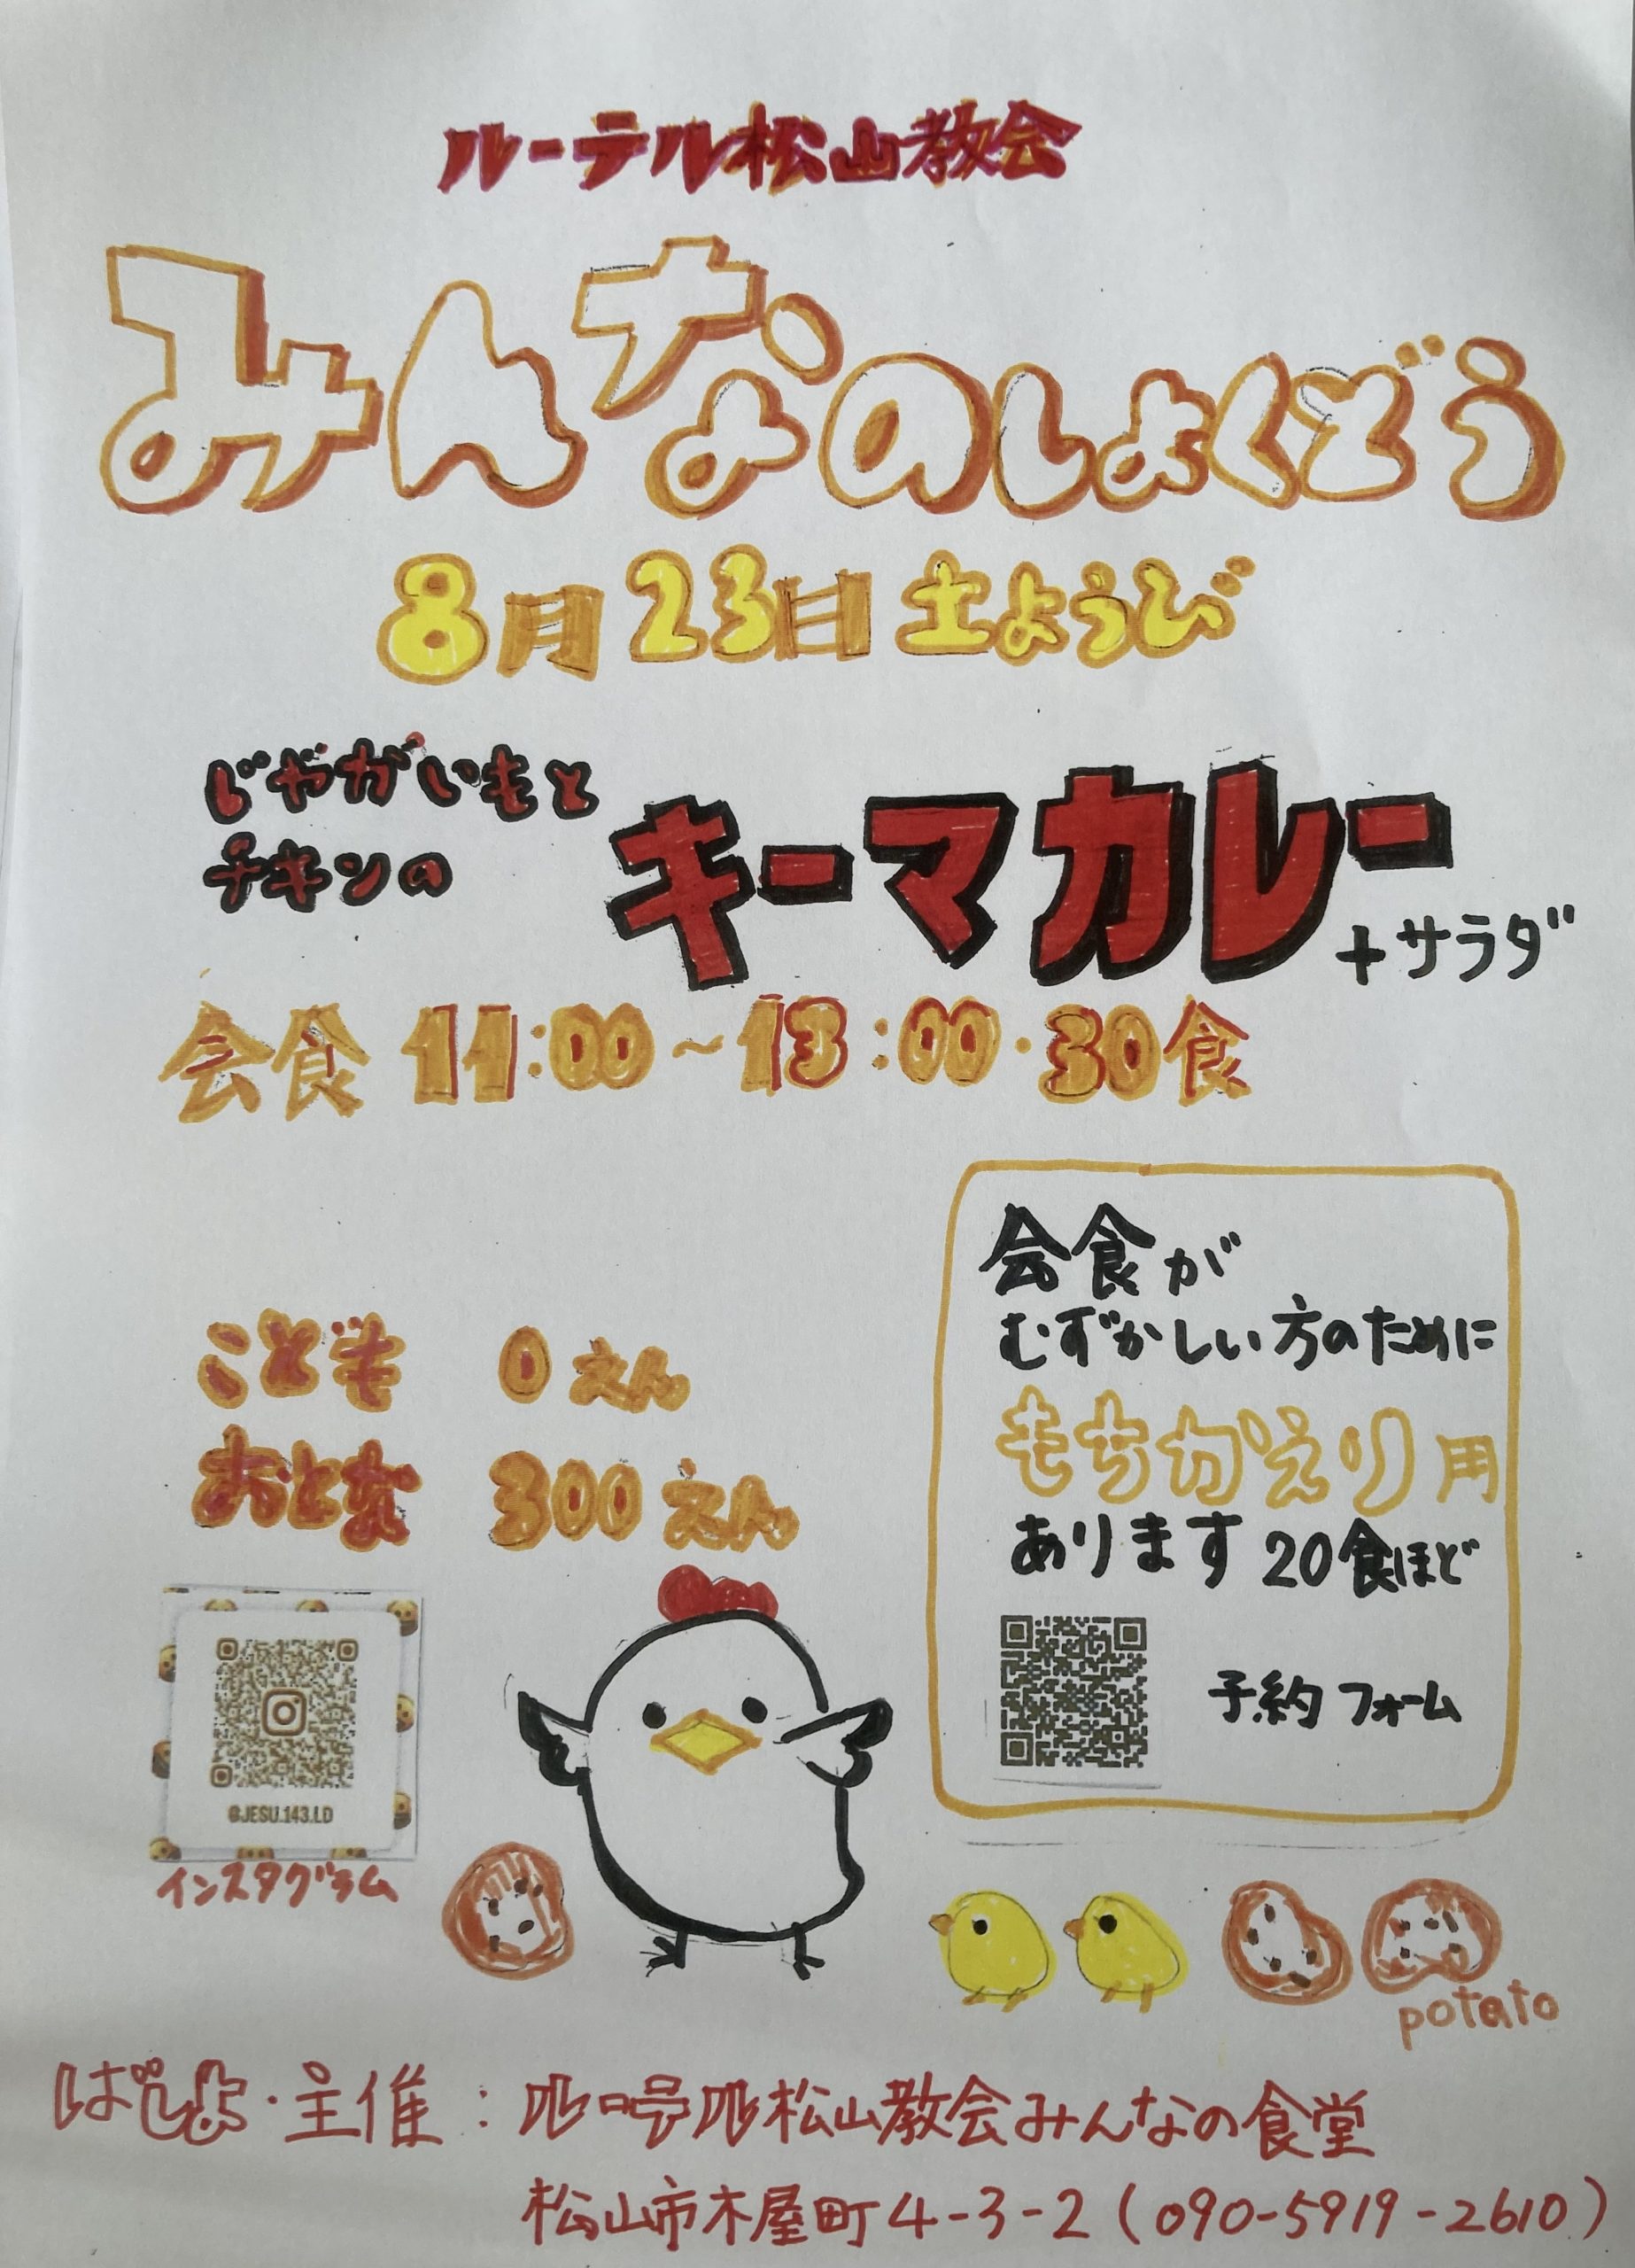 ルーテル松山教会
みんなのしょくどう
8月23日土ようび
じゃがいもと
チキンの
キーマカレー
+サラダ
会食 11:00~13:00・30食
こども 0えん
おとな 300えん
会食が
むずかしい方のために
もちかえり用
あります 20食ほど
予約フォーム
@JESU.143.LD
インスタグラム
potato
ばしょ・主催：ルーテル松山教会みんなの食堂
松山市木屋町4-3-2(090-5919-2610)